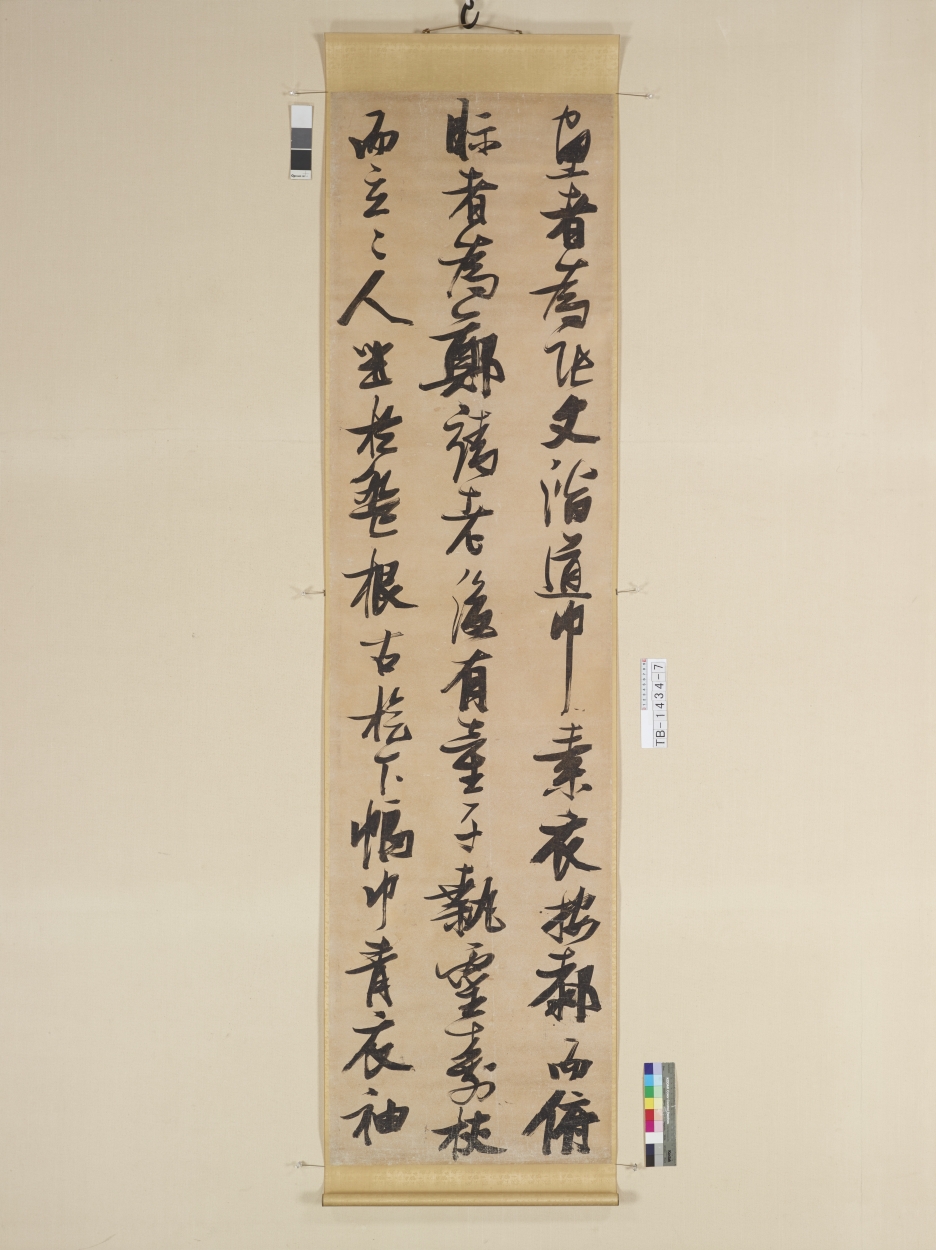 畫者為張文潛道巾素衣按膝而俯
眎者為鄭靖老後有童子執靈壽杖
而立二人坐於盤根古檜下幅巾青衣袖
TB-1434-7